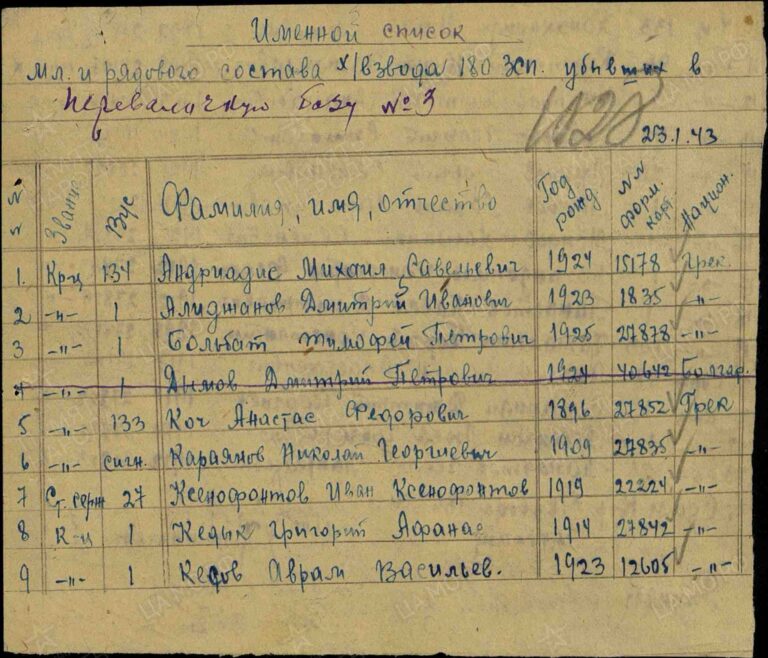 Именной список
мл. и рядового состава х/взвода 180 зсп. убывших в
Перевалочную базу № 3
23.1.43
N n Звание Вус Фамилия, имя, отчество Год рожд NN форм. карт. Национ.
1. Кр-ц 134 Андриадис Михаил Савельевич 1924 15178 Грек.
2 -"- 1 Алиджанов Дмитрий Иванович 1923 1835 -"-
3 -"- 1 Больбат Тимофей Петрович 1925 27878 -"-
4 -"- 1 Дымов Дмитрий Петрович 1924 40642 Болгар.
5 -"- 133 Коч Анастас Федорович 1896 27852 Грек
6 -"- сигн. Караянов Николай Георгиевич 1909 27835 -"-
7 Ст. серж 27 Ксенофонтов Иван Ксенофонтов 1919 22224 -"-
8 К-ц 1 Кедык Григорий Афанас 1914 27842 -"-
9 -"- 1 Кесов Аврам Васильев. 1923 12605 -"-